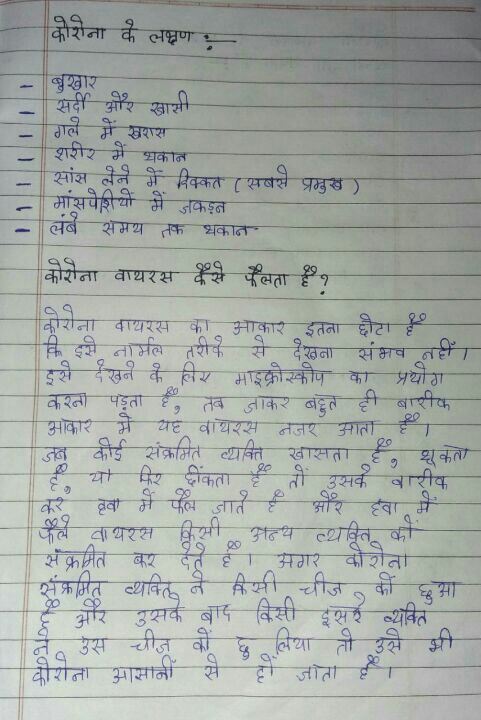 कोरोना के लक्षण :-
- बुखार
- सर्दी और खासी
- गले में खरास
- शरीर में थकान
- सांस लेने में दिक्कत (सबसे प्रमुख)
- मांसपेशियों में जकड़न
- लंबे समय तक थकान
कोरोना वायरस कैसे फैलता है?
कोरोना वायरस का आकार इतना छोटा है
कि इसे नार्मल तरीके से देखना संभव नहीं।
इसे देखने के लिए माइक्रोस्कोप का प्रयोग
करना पड़ता है, तब जाकर बहुत ही बारीक
आकार में यह वायरस नजर आता है।
जब कोई संक्रमित व्यक्ति खासता है, थूकता
है, या फिर छींकता है तो उसके बारीक
कर हवा में फैल जाते है और हवा में
फैले वायरस किसी अन्य व्यक्ति को
संक्रमित कर देते है। अगर कोरोना
संक्रमित व्यक्ति ने किसी चीज को छुआ
है और उसके बाद किसी दूसरे व्यक्ति
ने उस चीज को छु लिया तो उसे भी
कोरोना आसानी से हो जाता है।